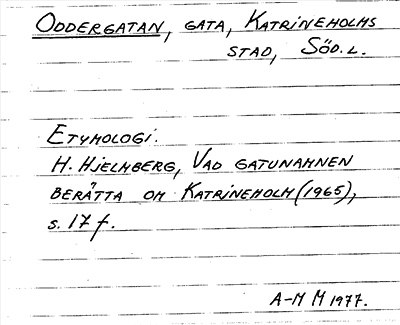 ODDERGATAN, GATA, KATRINEHOLMS
STAD, SÖD. L.
ETYMOLOGI.
H. HJELMBERG, VAD GATUNAMNEN
BERÄTTA OM KATRINEHOLM (1965),
s. 17 f.
A-M M 1977.